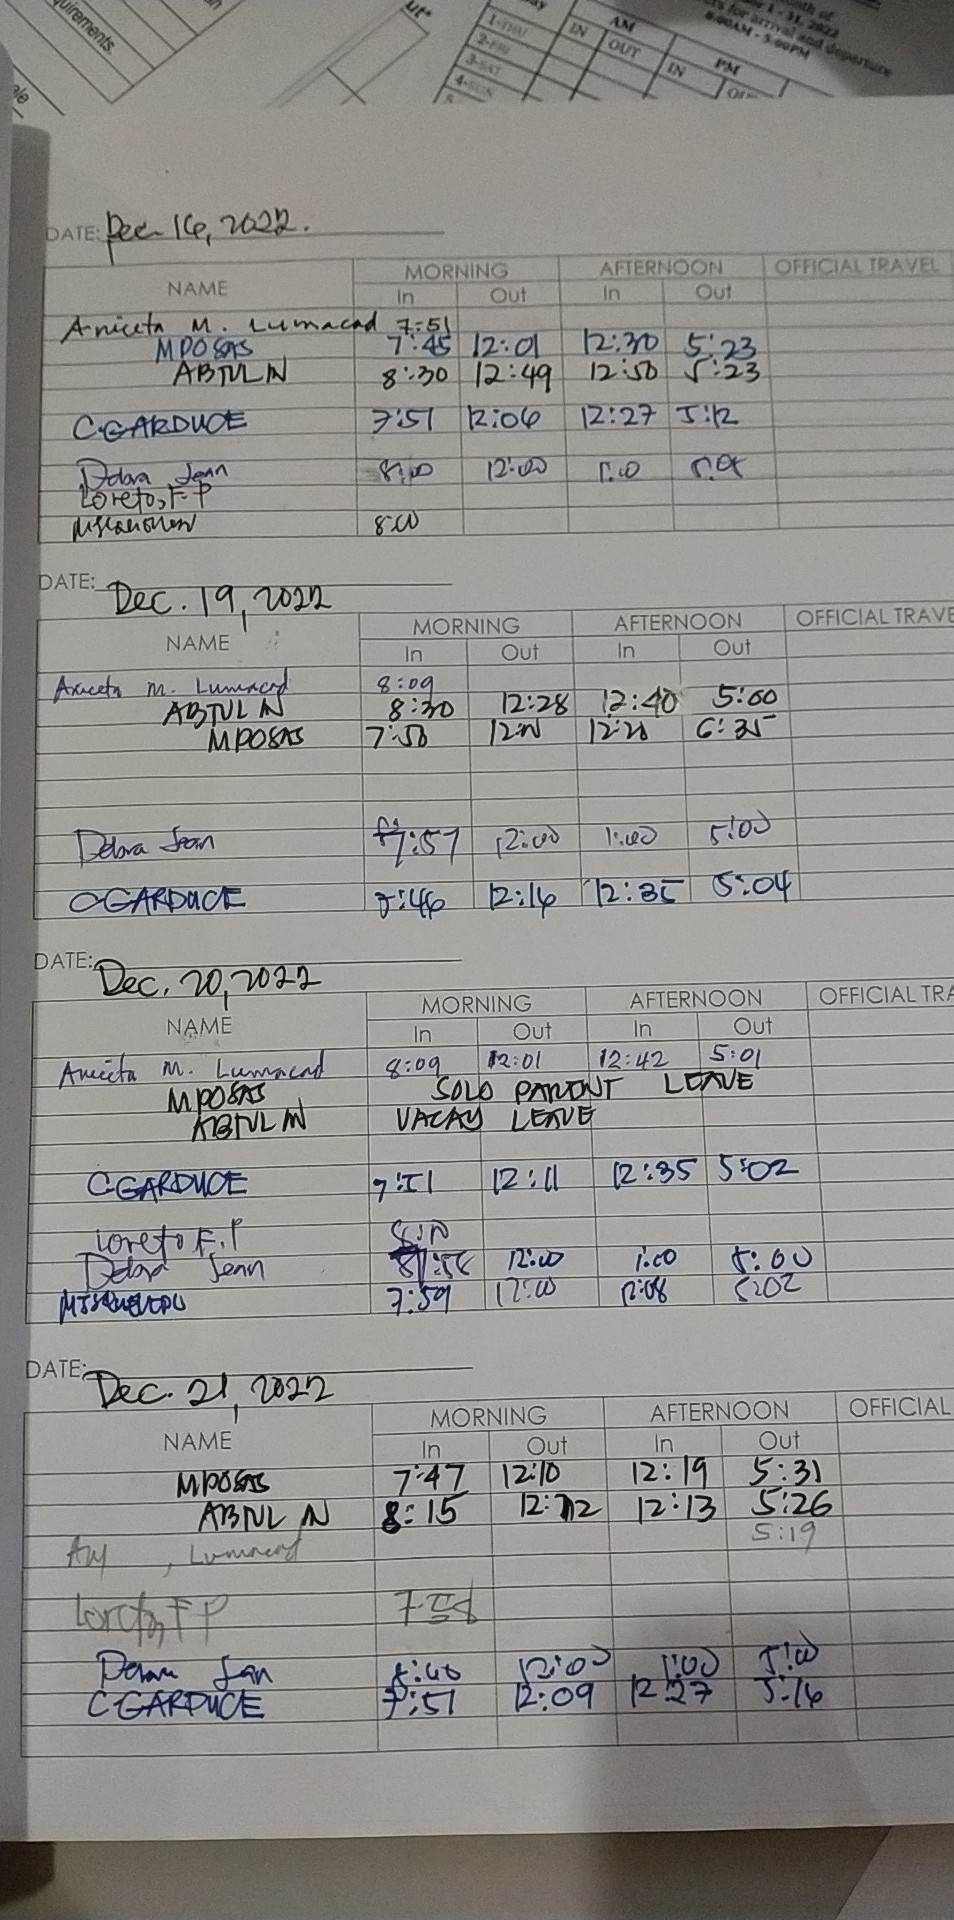 quirements.
AM
PM
IN OUT IN
1-THU
2-FRI
3-SAT
4-SUN
1 - 31, 2022
for arrival and departure
8:00AM - 5:00PM
DATE: Dec 16, 2022.
NAME MORNING AFTERNOON OFFICIAL TRAVEL
In Out In Out
Aniceta M. Lumacad 7:51
MPOSAS 7:45 12:01 12:30 5:23
ABTUL IN 8:30 12:49 12:50 5:23
CGARDUCE 7:51 12:06 12:27 5:12
Debra Jean 8:00 12:00
Loreto, F.P
8:00
DATE: Dec. 19, 2022
NAME MORNING AFTERNOON OFFICIAL TRAVE
In Out In Out
Aniceta M. Lumacad 8:09
ABTUL IN 8:30 12:28 12:40 5:00
MPOSAS 7:58 6:35
Debra Jean 7:57 12:00 1:00 5:00
CGARDUCE 7:46 12:16 12:35 5:04
DATE: Dec. 20, 2022
NAME MORNING AFTERNOON OFFICIAL TRA
In Out In Out
Aniceta M. Lumacad 8:09 12:01 12:42 5:01
MPOSAS SOLO PARENT LEAVE
ABTUL IN VACAY LEAVE
CGARDUCE 7:51 12:11 12:35 5:02
Loreto F.P
Debra Jean 12:00 1:00 5:00
7:59 12:00 12:08 5:02
DATE: Dec. 21, 2022
NAME MORNING AFTERNOON OFFICIAL
In Out In Out
MPOSAS 7:47 12:10 12:19 5:31
ABTUL IN 8:15 12:12 12:13 5:26
Lumacad 5:19
Loreto, FP 7:58
Debra Jean 12:00 1:00 5:00
CGARDUCE 7:51 12:09 12:27 5:16